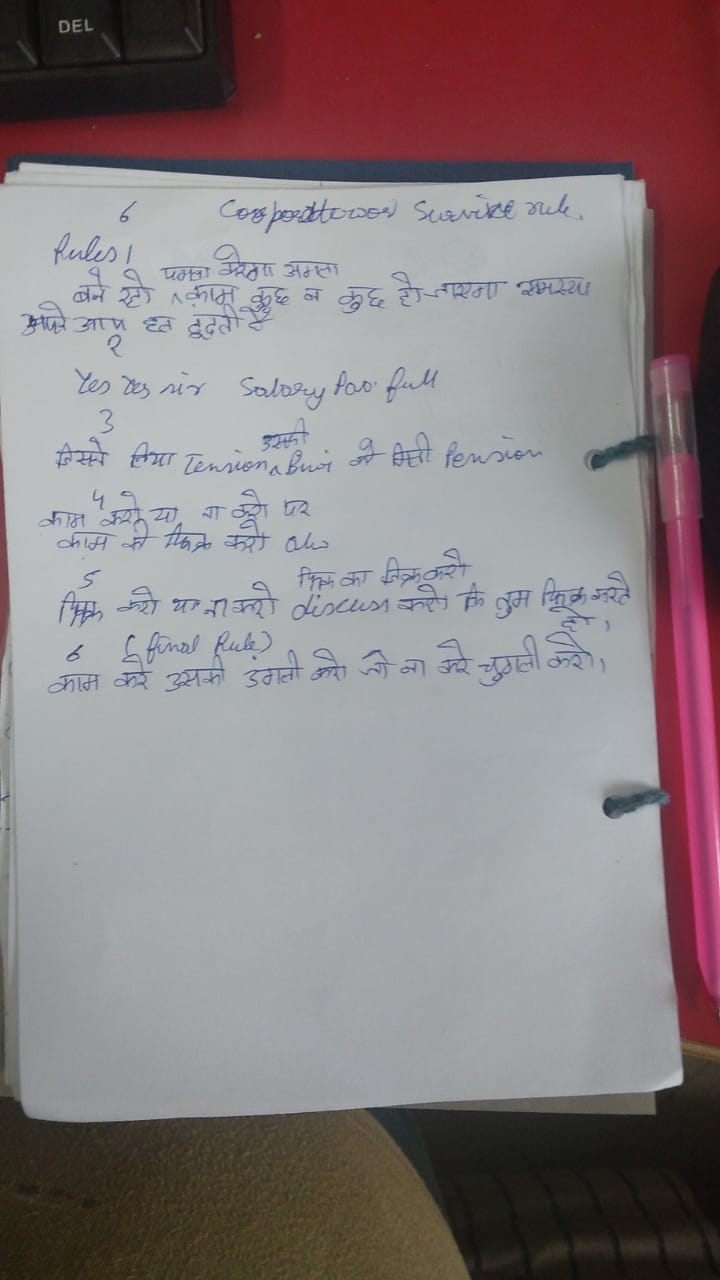 DEL
6 Service rule.
Rules 1
पगला करेगा अगला
बने रहो ^ काम कुछ न कुछ हो जाएगा समस्या
अपने आप हल ढूंढती है
2
Yes Yes sir Salary full
3
उसकी
जिसने लिया Tension ^ Biwi को मिली Pension
4
काम करो या ना करो पर
काम की फिक्र करो
5 फिक्र का जिक्र करो
फिक्र करो या ना करो discuss करो कि तुम फिक्र करते
हो।
6 (final Rule)
काम करे उसकी उंगली करो जो ना करे चुगली करो।